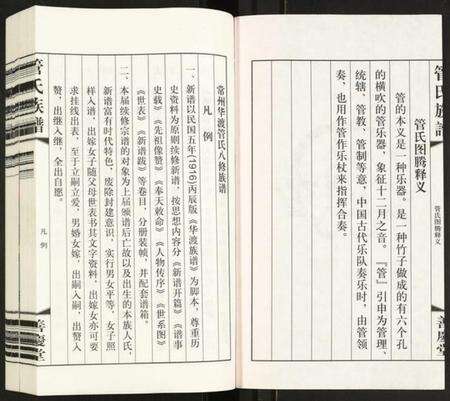 管氏族譜
管氏图腾释义
善慶堂
管氏图腾释义
管的本义是一种乐器。是一种竹子做成的有六个孔
的横吹的管乐器，象征十二月之音。『管』引申为管理、
统辖、管教、管制等意，中国古代乐队奏乐时，由管领
奏、也用作管作乐杖来指挥合奏。
常州华渡管氏八修族谱
凡例
一、新谱以民国五年(1916)丙辰版《华渡族谱》为脚本，尊重历
史资料为原则续修新谱，按思想内容分《新谱开篇》《谱事
史载》《先祖像赞》《奉天敕命》《人物传序》《世系图》
《世表》《新谱跋》等卷目，分册装帧，并配套谱箱。
二、本届续修宗谱的对象为上届颁谱后亡故以及出生的本族人氏，
新谱富有时代特色，废除封建意识，实行男女平等，女子照
样入谱，出嫁女子随父母世表书其文字资料，出嫁女亦可要
求挂线出表，至于立嗣立爱，男婚女嫁，出嗣入嗣，出赘入
赘，出继入继，全出自愿。
管氏族譜
凡例
善慶堂